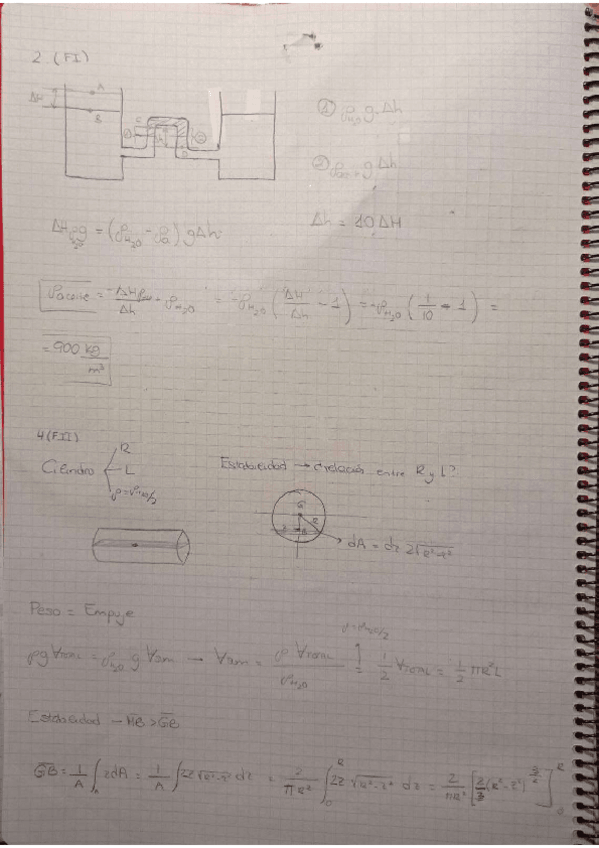 2. (FI)
ΔH A B
① ρH₂O g Δh
② ρaceite g Δh
Δh = 10ΔH
ΔHρg = (ρH₂O - ρa) gΔh
ρaceite = -ΔHρH₂O/Δh + ρH₂O = -ρH₂O (ΔH/Δh - 1) = -ρH₂O (1/10 - 1) =
= 900 kg/m³
4 (FII)
Cilindro R L ρ=ρH₂O/2
Estabilidad → ¿relación entre R y L?
dA = dz 2√R²-z²
Peso = Empuje
ρ=ρH₂O/2
ρg∀TOTAL = ρH₂O g ∀sum → ∀sum = ρ∀TOTAL/ρH₂O = 1/2 ∀TOTAL = 1/2 πR²L
Estabilidad → MB > GB
GB = 1/A ∫A zdA = 1/A ∫2z√R²-z² dz = 2/πR² ∫₀ᴿ 2z √R²-z² dz = 2/πR² [2/3 (R²-z²)^3/2]₀ᴿ